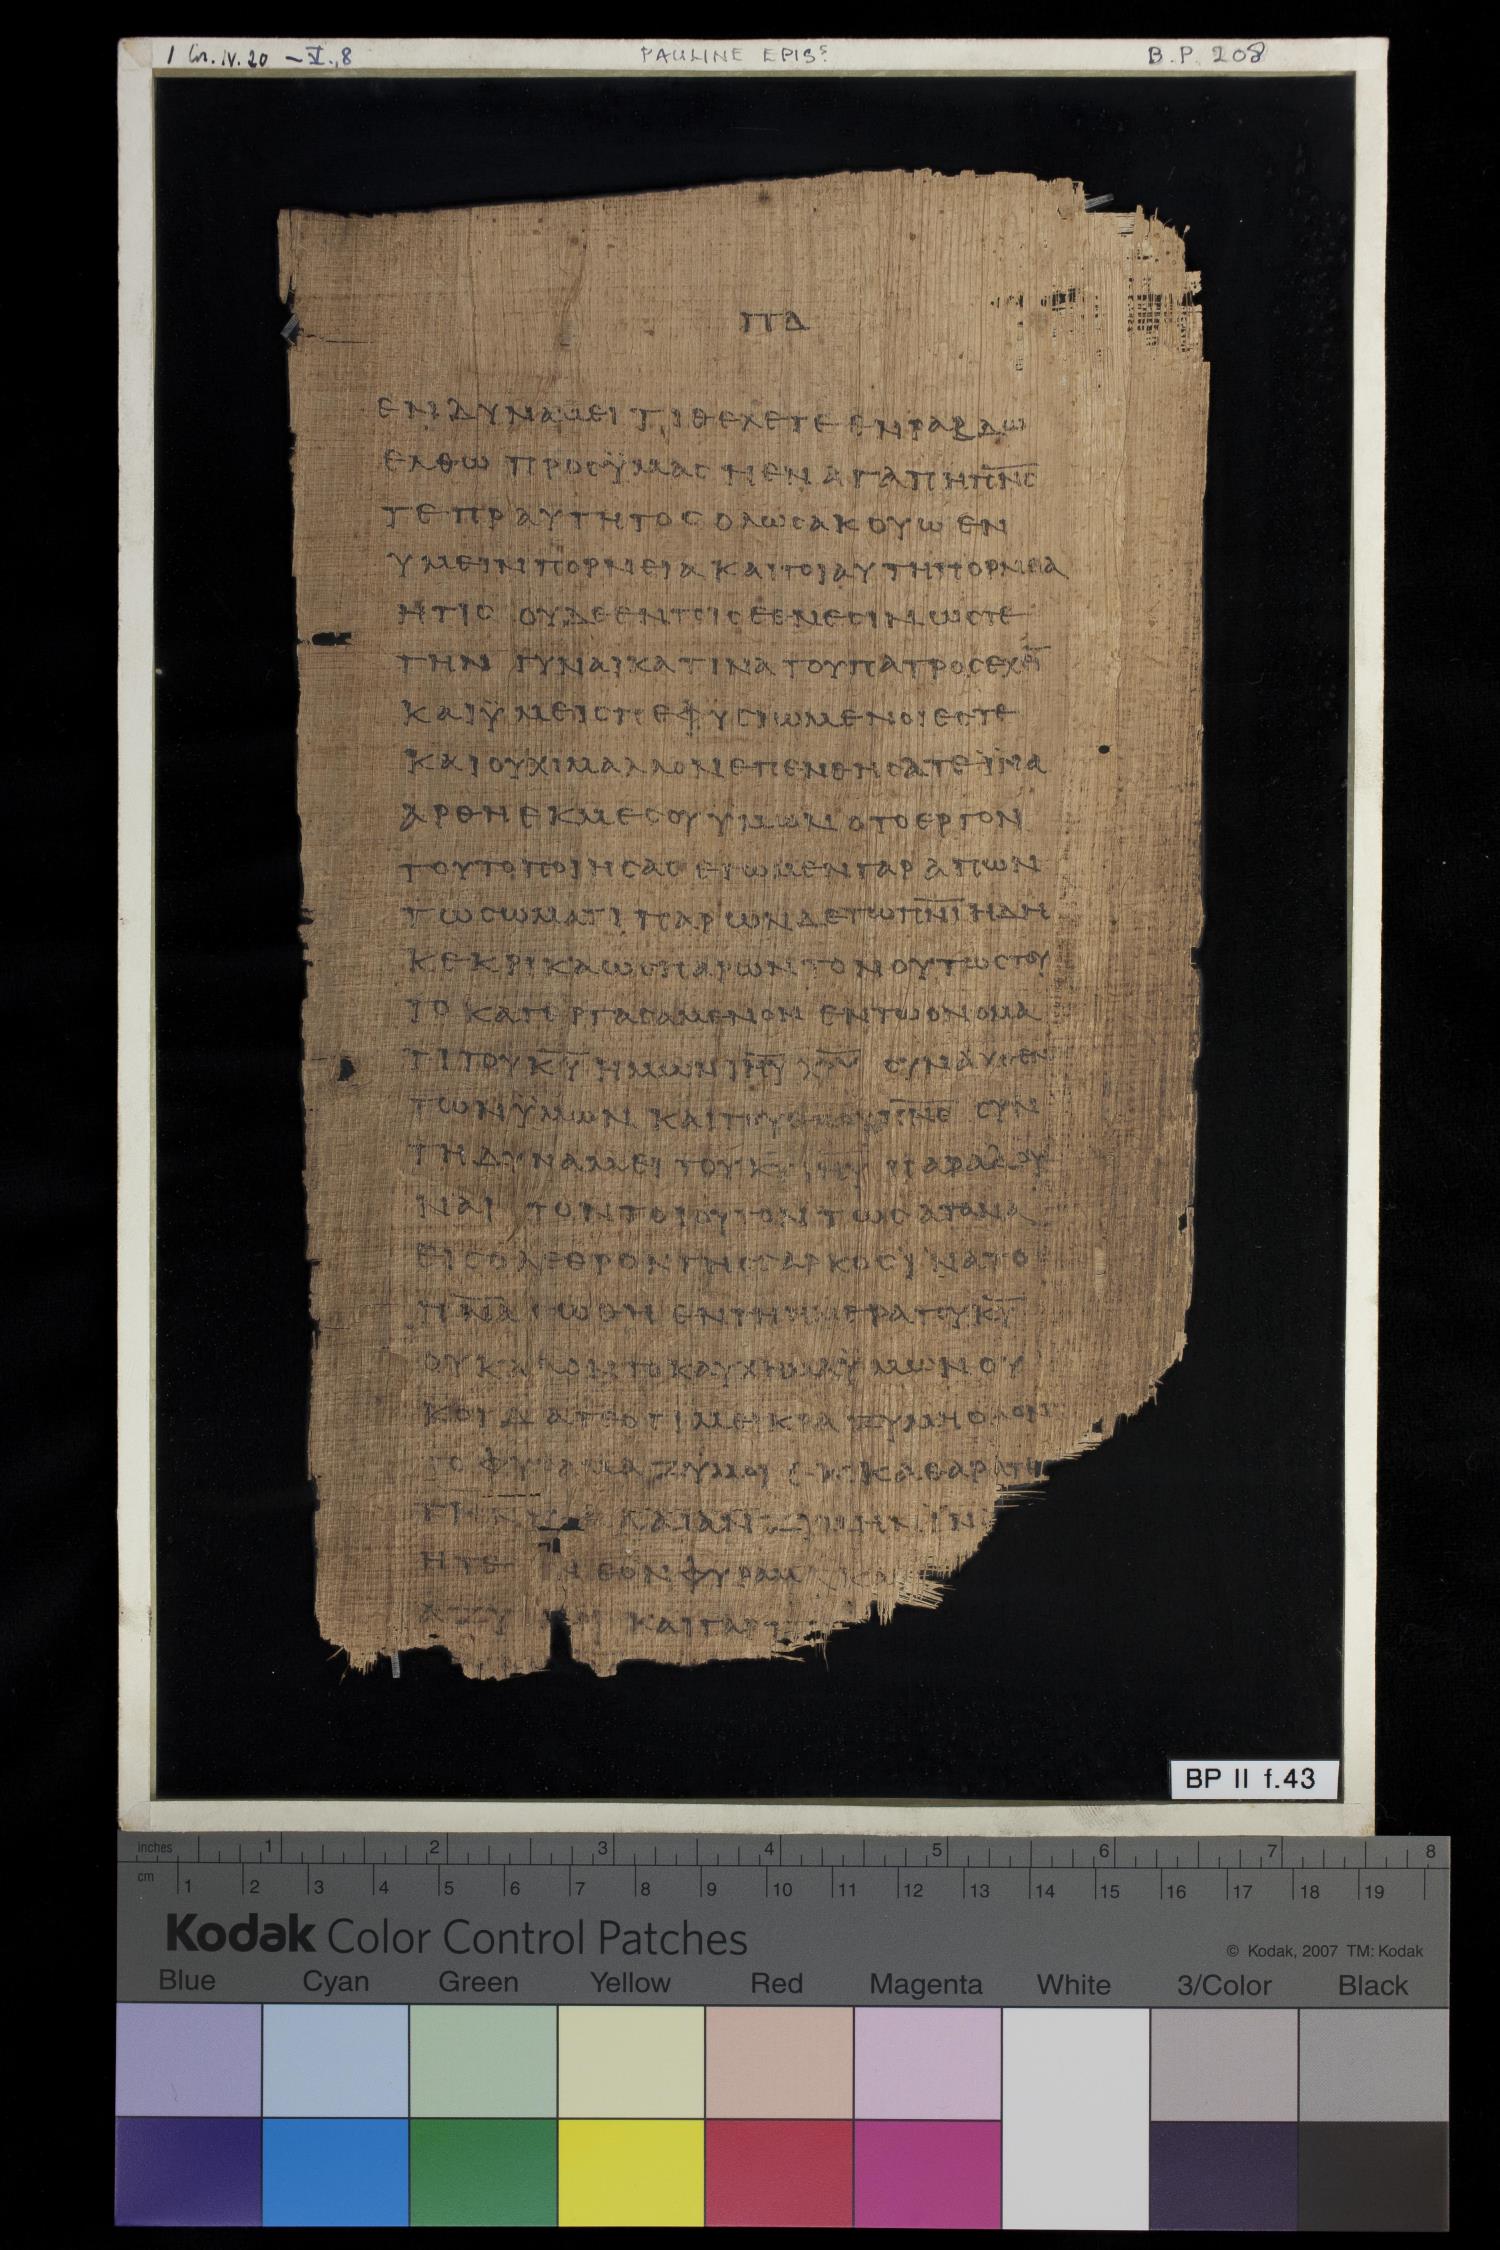 1 Cor. IV. 20 – V., 8 PAULINE EPISS B.P. 208
ΠΔ
ΕΝ ΔΥΝΑΜΕΙ ΤΙ ΘΕΛΕΤΕ ΕΝ ΡΑΒΔΩ
ΕΛΘΩ ΠΡΟΣ ΫΜΑΣ Η ΕΝ ΑΓΑΠΗ Π̅Ν̅Σ̅
ΤΕ ΠΡΑΥΤΗΤΟΣ ΟΛΩΣ ΑΚΟΥΩ ΕΝ
ΥΜΕΙΝ ΠΟΡΝΕΙΑ ΚΑΙ ΤΟΙΑΥΤΗ ΠΟΡΝΕΙΑ
ΗΤΙΣ ΟΥΔΕ ΕΝ ΤΟΙΣ ΕΘΝΕΣΙΝ ΩΣΤΕ
ΓΥΝΑΙΚΑ ΤΙΝΑ ΤΟΥ ΠΑΤΡΟΣ
ΚΑΙ ΫΜΕΙΣ ΠΕΦΥΣΙΩΜΕΝΟΙ ΕΣΤΕ
ΚΑΙ ΟΥΧΙ ΜΑΛΛΟΝ ΕΠΕΝΘΗΣΑΤΕ ΪΝΑ
ΑΡΘΗ ΕΚ ΜΕΣΟΥ ΥΜΩΝ Ο ΤΟ ΕΡΓΟΝ
ΤΟΥΤΟ ΠΟΙΗΣΑΣ ΕΓΩ ΜΕΝ ΓΑΡ ΑΠΩΝ
ΤΩ ΣΩΜΑΤΙ ΠΑΡΩΝ ΔΕ ΤΩ Π̅Ν̅Ι̅ ΗΔΗ
ΚΕΚΡΙΚΑ ΩΣ ΠΑΡΩΝ ΤΟΝ ΟΥΤΩΣ ΤΟΥ
ΤΟ ΕΝ ΤΩ ΟΝΟΜΑ
ΤΙ ΤΟΥ Κ̅Υ̅ ΗΜΩΝ Ι̅Η̅Υ̅
ΤΩΝ ΫΜΩΝ ΚΑΙ ΣΥΝ
ΤΗ ΔΥΝΑΜΕΙ ΤΟΥ Κ̅Υ̅ Ι̅Η̅Υ̅ ΠΑΡΑΔΟΥ
ΝΑΙ ΤΟΝ ΤΟΙΟΥΤΟΝ ΤΩ ΣΑΤΑΝΑ
ΕΙΣ ΟΛΕΘΡΟΝ ΤΗΣ ΣΑΡΚΟΣ ΪΝΑ ΤΟ
Π̅Ν̅Α̅ ΣΩΘΗ ΕΝ ΤΗ ΗΜΕΡΑ ΤΟΥ Κ̅Υ̅
ΟΥ ΚΑΛΟΝ ΤΟ ΚΑΥΧΗΜΑ ΫΜΩΝ ΟΥ
ΚΟΙΔΑΤΕ ΟΤΙ ΜΕΙΚΡΑ ΖΥΜΗ ΟΛΟΝ
ΤΟ ΦΥΡΑΜΑ ΖΥΜΟΙ ΕΚΚΑΘΑΡΑΤΕ
ΤΗΝ
ΗΤΕ ΝΕΟΝ ΦΥΡΑΜΑ
ΚΑΙ ΓΑΡ
BP II f.43
inches 1 2 3 4 5 6 7 8
cm 1 2 3 4 5 6 7 8 9 10 11 12 13 14 15 16 17 18 19
Kodak Color Control Patches
© Kodak, 2007 TM: Kodak
Blue Cyan Green Yellow Red Magenta White 3/Color Black